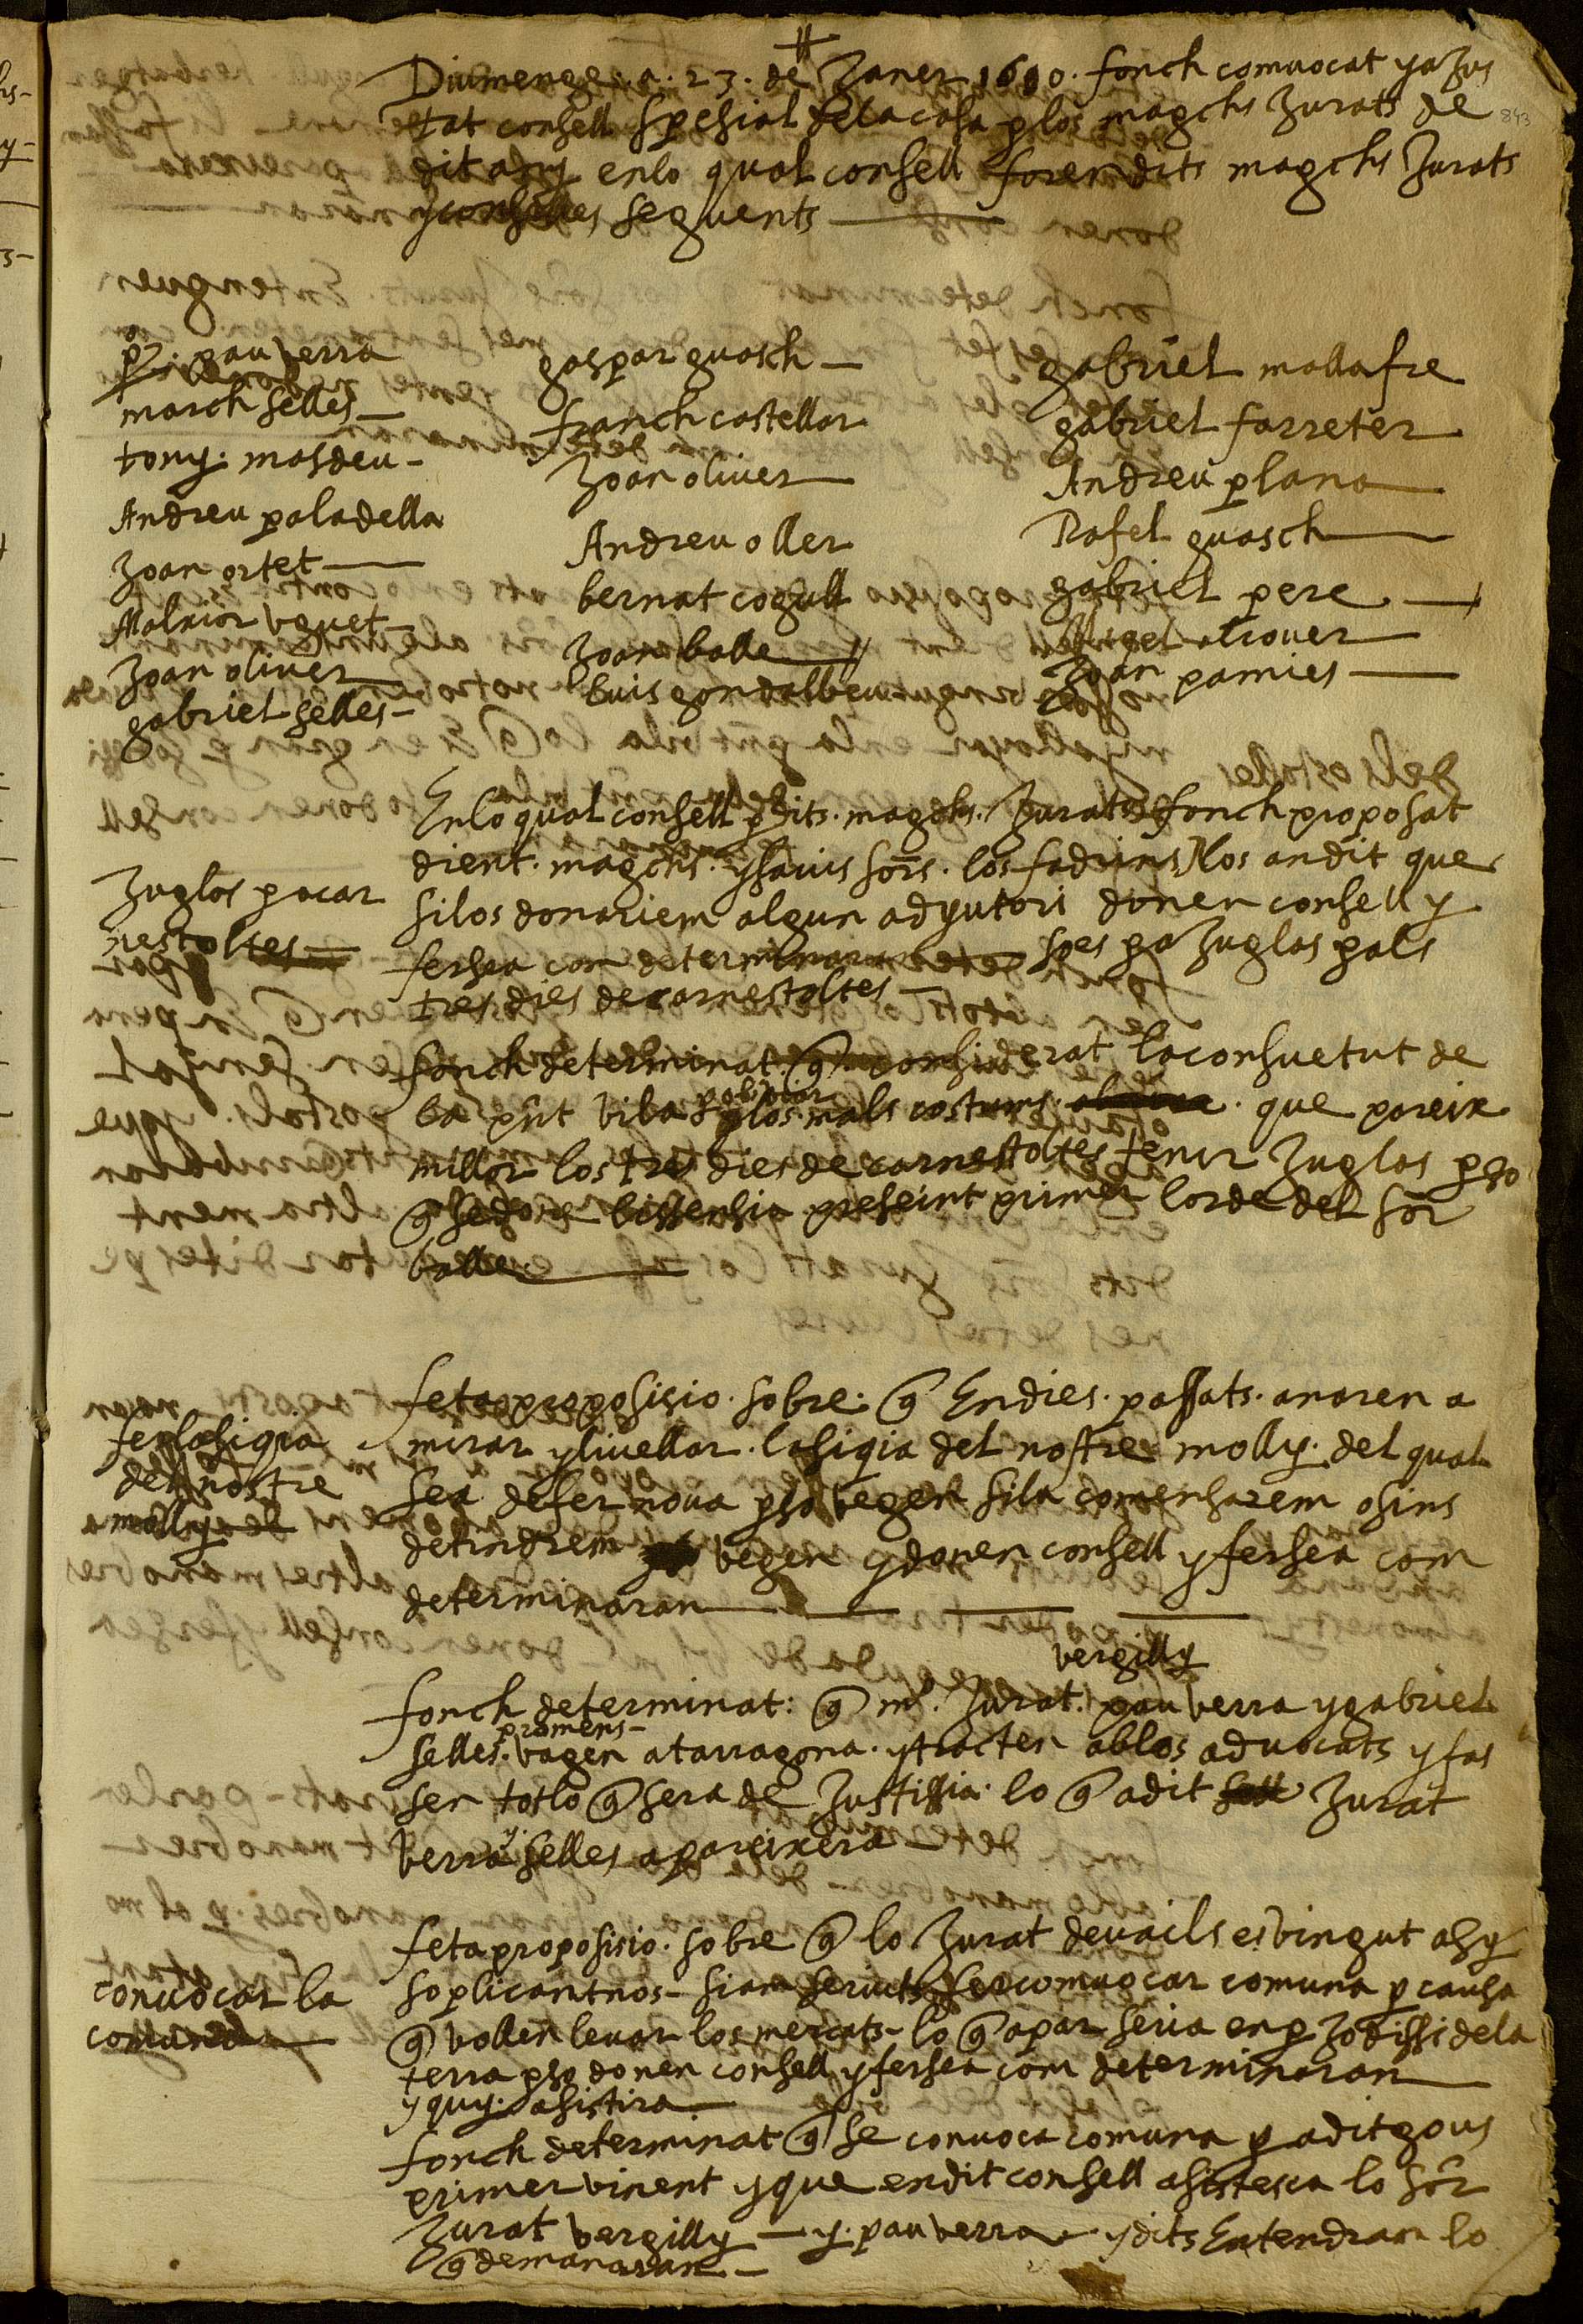 Diumenge a. 23. de Janer 1610. fonch comuocat y aJus
tat consell spesial de la casa p los magchs Jurats de
dit any en lo qual consell foren dits magchs Jurats
y conselles seguents
843
pº. pau Verra
march selles
tony. masdeu
Andreu paladella
Joan ortet
Malxior Vguet
Joan oliuer
gabriel selles
gaspar guasch
franch castellar
Joan oliuer
Andreu oller
bernat cogull
Joan balle
luis gondalbeu
gabriel mallafre
gabriel farreter
Andreu plana
Rafel guasch
gabriel pere
Migel alrouer
Joan pamies
Juglos p car
nestoltes
En lo qual consell p dits. magchs. Jurats fonch proposat
dient. magchs. y sauis sors. los fadrins nos an dit que
si los donariem algun adyutori donen consell y
fersea com determinaran so es pa Juglas p als
tres dies de carnestoltes
fonch determinat. q considerat la consuetut de
la pnt Vila p obiar p los mals costums. que pareix
millor los tres dies de carnestoltes tenir Juglas p so
q se done lissensia preseint primer lorde del sor
balle
fer la siqia
del nostre
molly
feta proposisio. sobre. q En dies. passats. anaren a
mirar y liuellar. la siqia del nostre molly. del qual
sea de fer noua p so vegen si la comensarem o sins
detindrem vegen y donen consell y fersea com
determinaran
vergilly
fonch determinat: q mº. Jurat. pau verra y gabriel
promens
selles. vagen a tarragona. y tracten ab los aduocats y fas
sen tot lo q sera de Justissia. lo q a dit Jurat
verra y. selles apareixera
conuocar la
comuna
feta proposisio. sobre q lo Jurat deuails es vingut asy
soplicantnos. siam seruits fer comuocar comuna p causa
q vollen leuar los mercats. lo q apar seria en p Jodissi de la
terra p so donen consell y fersea com determinaran
y quy. asistira
fonch determinat q se conuoca comuna p a ditgous
primer vinent y que en dit consell asistesca lo sor
Jurat vergilly y. pau verra y dits Entendran lo
q demanaran